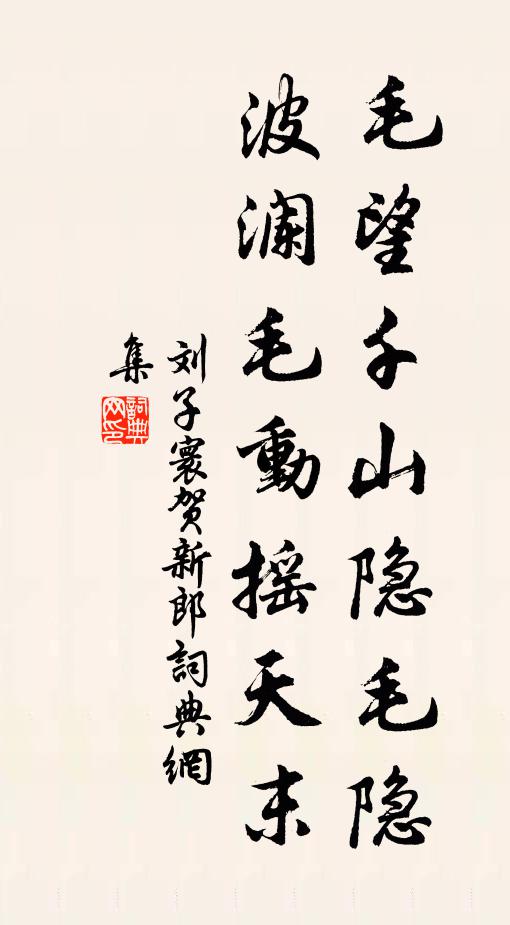 毛望千山隐毛隐
波澜毛動摇天末
刘子寰贺新郎詞典網
集
詞典網印